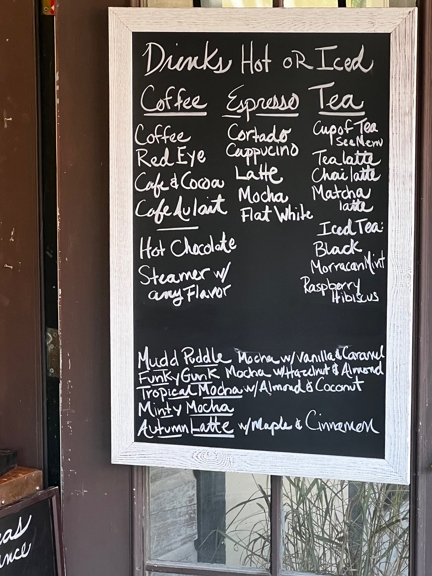 Drinks Hot OR Iced
Coffee
Coffee
Red Eye
Cafe & Cocoa
Cafe Au lait
Hot Chocolate
Steamer w/
any Flavor
Espresso
Cortado
Cappucino
Latte
Mocha
Flat White
Tea
Cup of Tea
See Menu
Tea latte
Chai latte
Matcha
latte
Iced Tea:
Black
Morracan Mint
Raspberry
Hibiscus
Mudd Puddle Mocha w/ Vanilla & Caramel
Funky Gunk Mocha w/ Hazelnut & Almond
Tropical Mocha w/ Almond & Coconut
Minty Mocha
Autumn Latte w/ Maple & Cinnamon